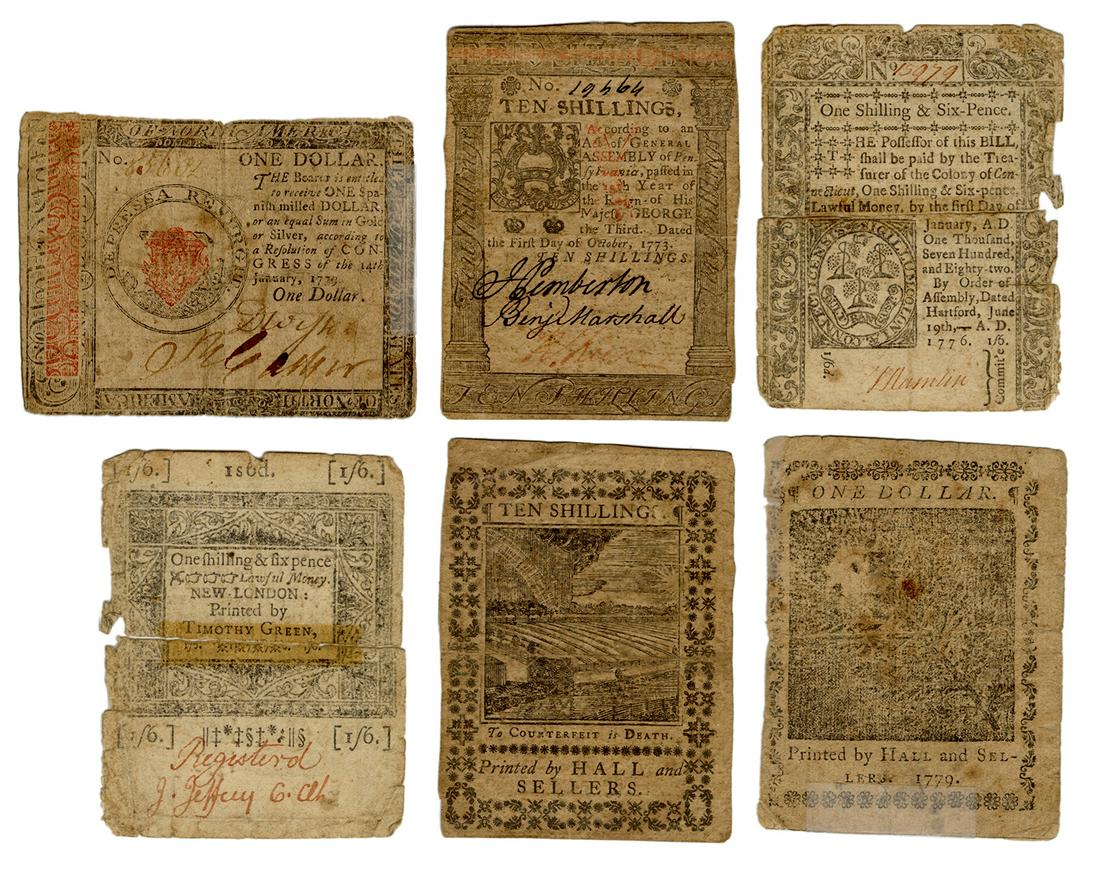 OF NORTH AMERICA
No.
ONE DOLLAR.
THE Bearer is entitled
to receive ONE Spa-
nish milled DOLLAR,
or an equal Sum in Gold
or Silver, according to
a Resolution of CON-
GRESS of the 14th
January, 1779.
One Dollar.
DEPRESSA RESURGIT
THE UNITED STATES
OF NORTH
AMERICA
No. 19564
TEN SHILLINGS,
According to an
Act of GENERAL
ASSEMBLY of Pen-
sylvania, passed in
the 13th Year of
the Reign of His
Majesty GEORGE
the Third. Dated
the First Day of October, 1773.
TEN SHILLINGS.
J Pemberton
Benj Marshall
TEN SHILLINGS
No 15979
One Shilling & Six-Pence.
THE Possessor of this BILL,
shall be paid by the Trea-
surer of the Colony of Con-
necticut, One Shilling & Six-pence
Lawful Money, by the first Day of
January, A.D.
One Thousand,
Seven Hundred,
and Eighty-two.
By Order of
Assembly, Dated
Hartford, June
19th,— A. D.
1776. 1/6.
1/6d.
Committ'e
[1/6.] 18d. [1/6.]
One shilling & six pence
Lawful Money.
NEW-LONDON:
Printed by
TIMOTHY GREEN,
[1/6.] ||‡*‡§‡*:||§ [1/6.]
Registerd
J. Jeffery C. Clk
TEN SHILLINGS.
To COUNTERFEIT is DEATH.
Printed by HALL and
SELLERS.
ONE DOLLAR.
Printed by HALL and SEL-
LERS. 1779.